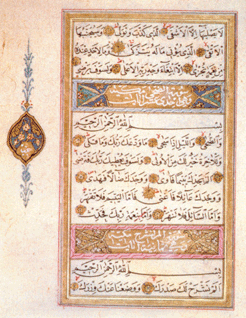 لَا يَصْلَيهَا إِلَّا الْأَشْقَى الَّذِي كَذَّبَ وَتَوَلَّى وَسَيُجَنَّبُهَا
الْأَتْقَى الَّذِي يُؤْتِي مَالَهُ يَتَزَكَّى وَمَا لِأَحَدٍ عِنْدَهُ
مِنْ نِعْمَةٍ تُجْزَى إِلَّا ابْتِغَاءَ وَجْهِ رَبِّهِ الْأَعْلَى وَلَسَوْفَ يَرْضَى
بِسْمِ اللَّهِ الرَّحْمَنِ الرَّحِيمِ
وَالضُّحَى وَاللَّيْلِ إِذَا سَجَى مَا وَدَّعَكَ رَبُّكَ وَمَا قَلَى
وَلَلْآخِرَةُ خَيْرٌ لَكَ مِنَ الْأُولَى وَلَسَوْفَ يُعْطِيكَ رَبُّكَ فَتَرْضَى
أَلَمْ يَجِدْكَ يَتِيمًا فَآوَى وَوَجَدَكَ ضَالًّا فَهَدَى
وَوَجَدَكَ عَائِلًا فَأَغْنَى فَأَمَّا الْيَتِيمَ فَلَا تَقْهَرْ
وَأَمَّا السَّائِلَ فَلَا تَنْهَرْ وَأَمَّا بِنِعْمَةِ رَبِّكَ فَحَدِّثْ
بِسْمِ اللَّهِ الرَّحْمَنِ الرَّحِيمِ
أَلَمْ نَشْرَحْ لَكَ صَدْرَكَ وَوَضَعْنَا عَنْكَ وِزْرَكَ